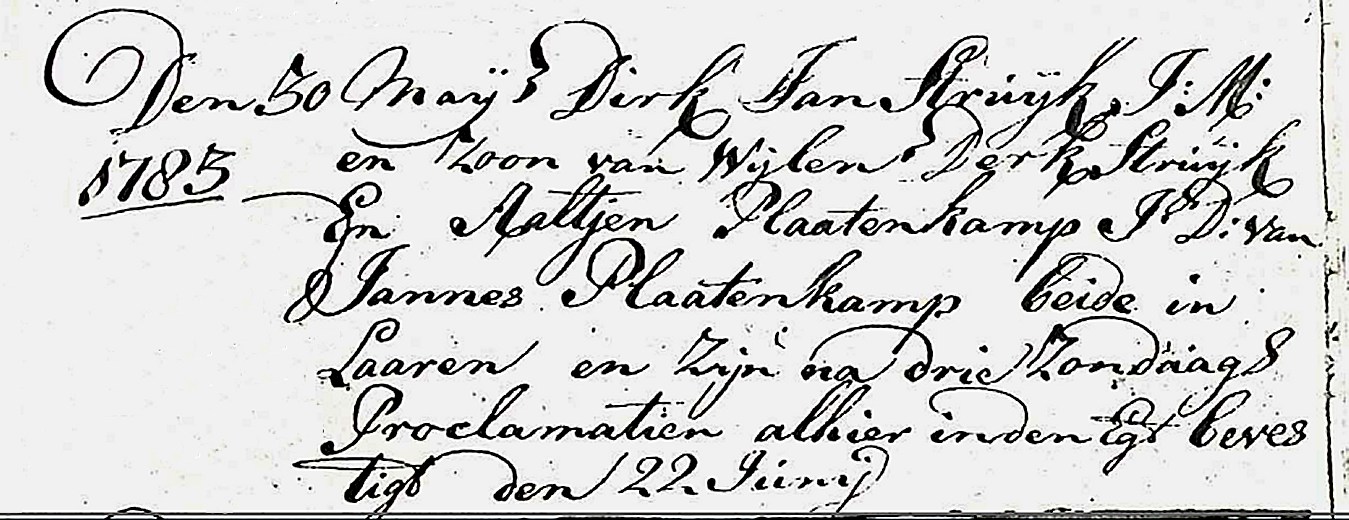 Den 30 Maij Dirk Jan Struijk J: M:
1783 en Zoon van Wijlen Derk Struijk
En Aaltjen Plaatenkamp J: D: van
Jannes Plaatenkamp beide in
Laaren en Zijn na drie Zondaags
Proclamatien alhier inden Egt beves
tigt den 22 Junij